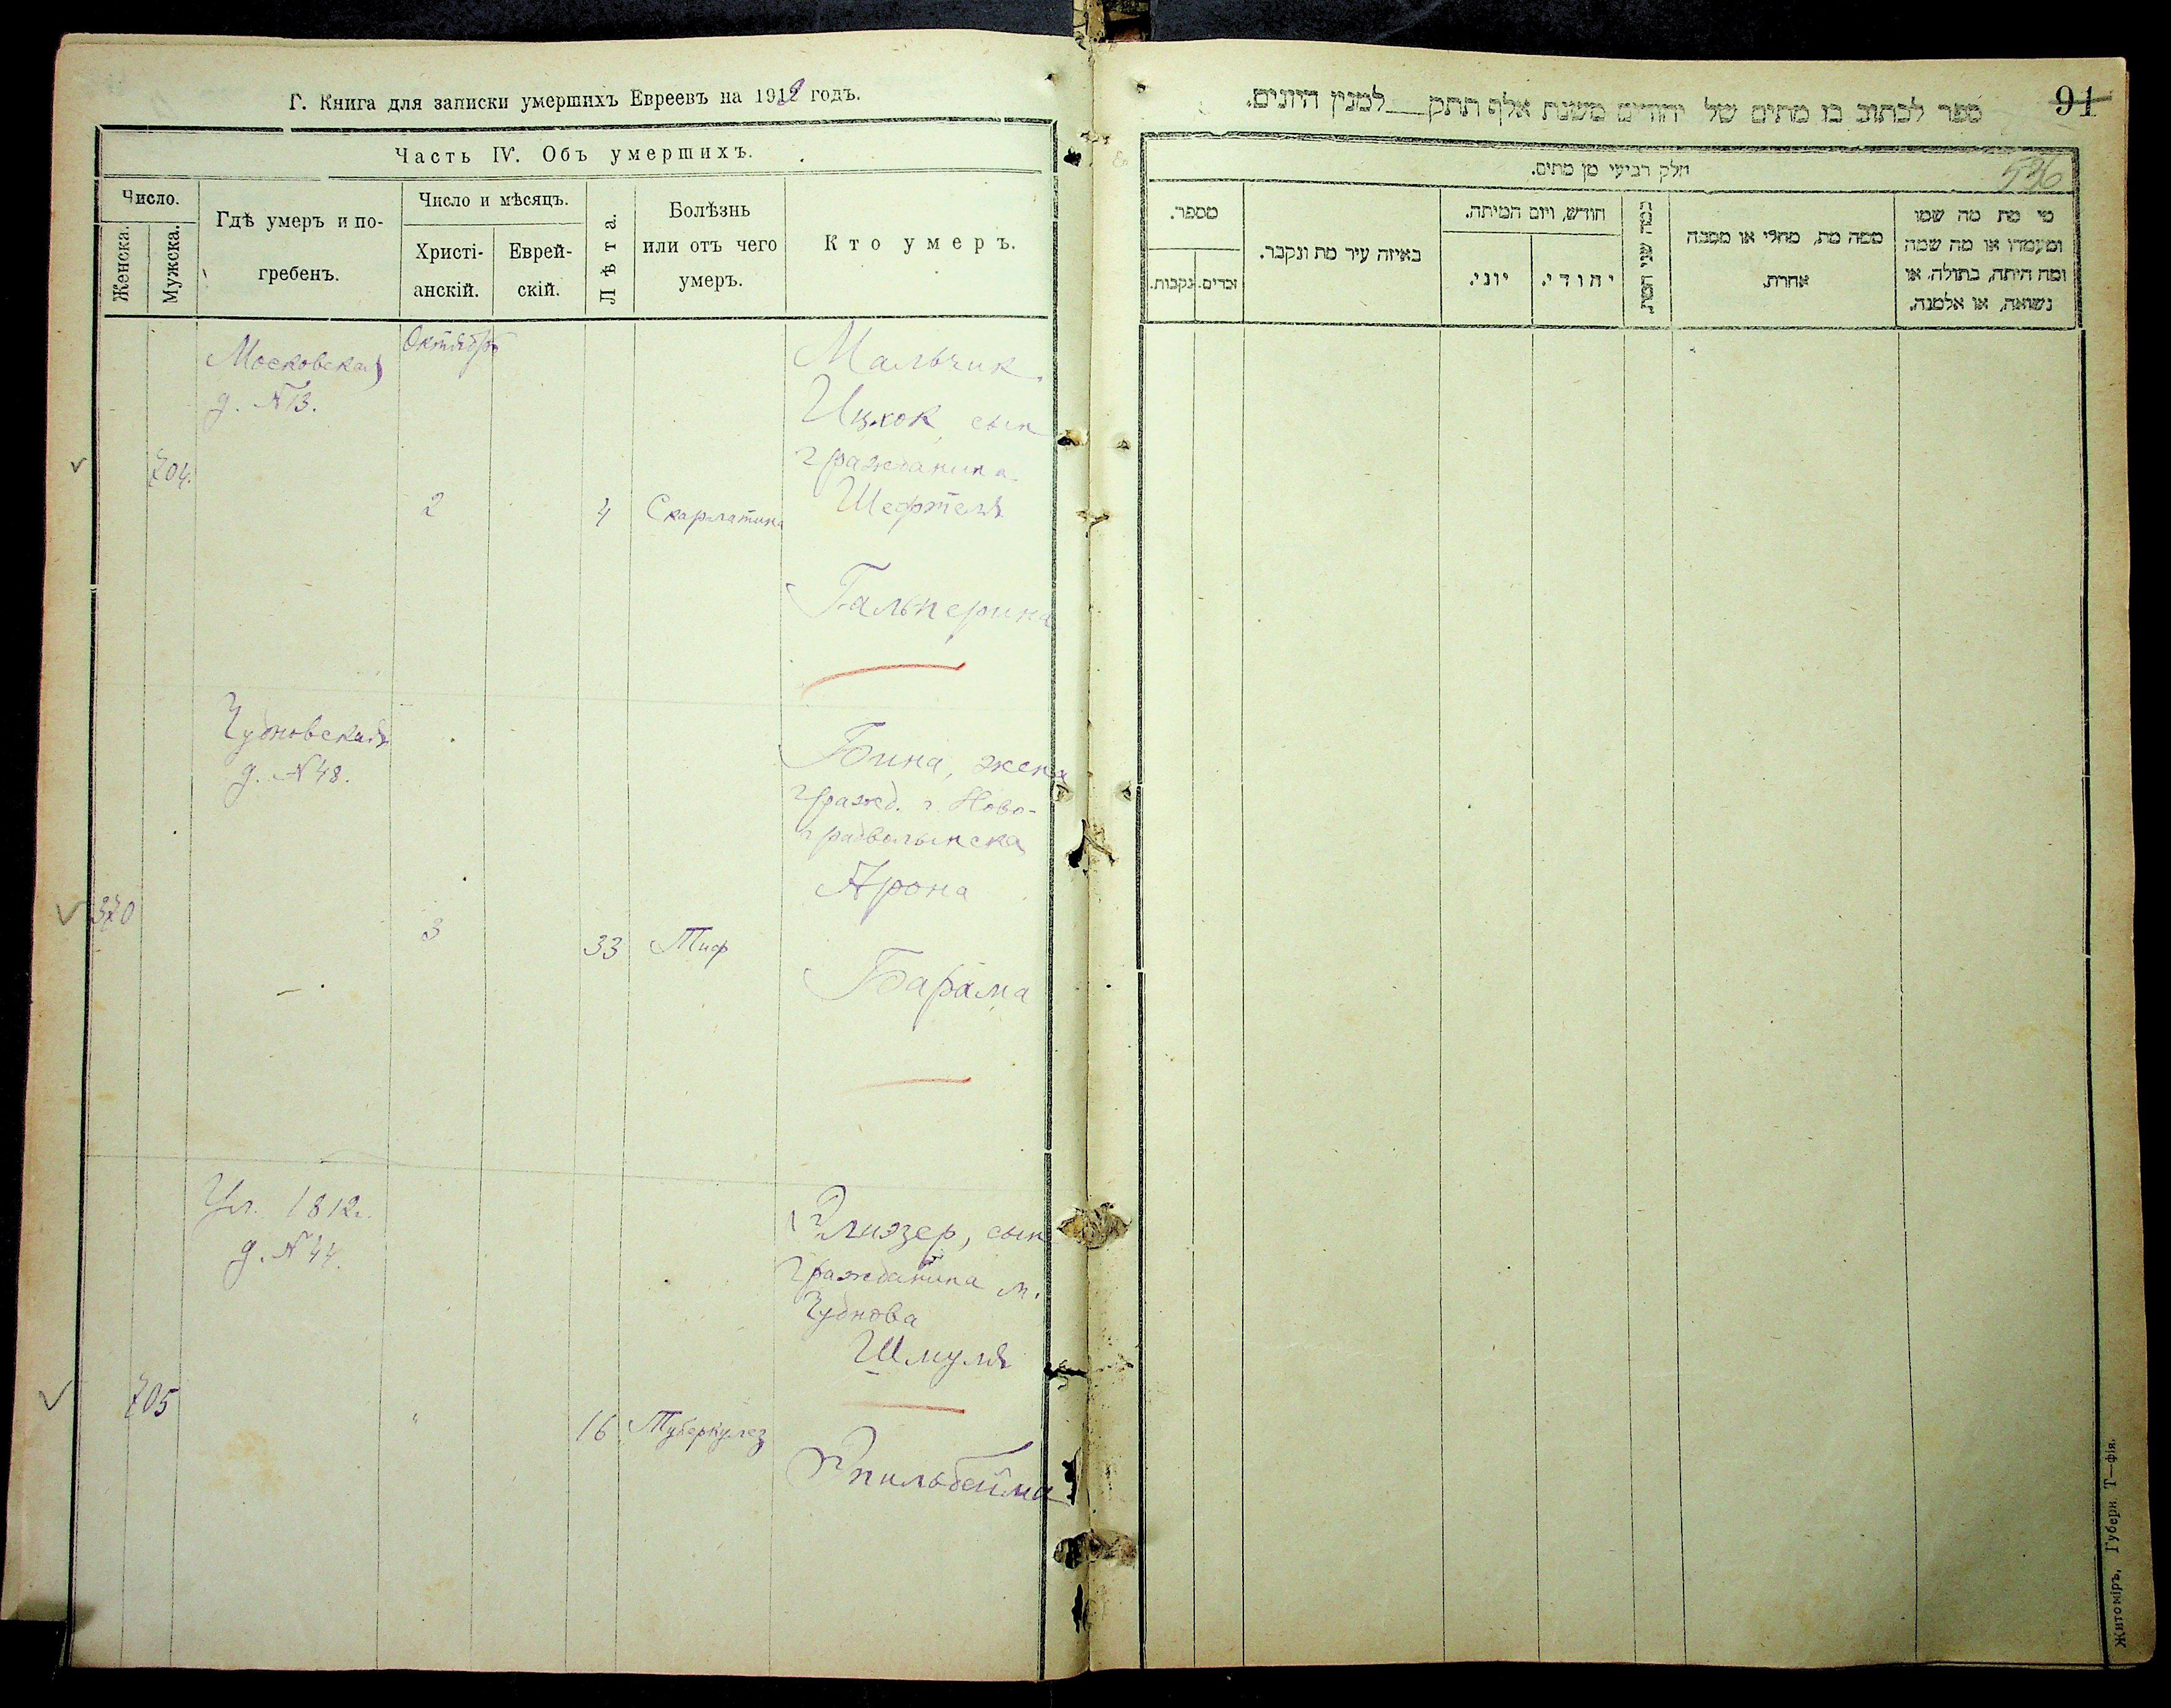 Г. Книга для записки умершихъ Евреевъ на 1919 годъ.
Часть IV. Объ умершихъ.
Число.
Женска.
Мужска.
Гдѣ умеръ и по-
гребенъ.
Число и мѣсяцъ.
Христі-
анскій.
Еврей-
скій.
Лѣта.
Болѣзнь
или отъ чего
умеръ.
Кто умеръ.
704.
Московская
д. №13.
Октября
2
4
Скарлатина
Мальчик
Ицхок, сын
гражданина
Шефтеля
Гальперина
370
Чудновская
д. №48.
3
33
Тиф
Бина, жена
гражд. г. Ново-
градволынска
Арона
Барама
705
Ул. 1812г.
д. №44.
"
16
Туберкулез
Элиэзер, сын
гражданина м.
Чуднова
Шмуля
Эпильбайма
ספר לכתוב בו מתים של יהודים משנת אלף תתק למנין היונים.
91
536
חלק רביעי מן מתים.
מספר.
נקבות.
זכרים.
באיזה עיר מת ונקבר.
חודש, ויום המיתה.
יוני.
יהודי.
כמה שני המת.
ממה מת, מחלי או מסבה
אחרת.
מי מת מה שמו
ומעמדו או מה שמה
ומה היתה, בתולה, או
נשואה, או אלמנה.
Житоміръ, Губерн. Т—фія.